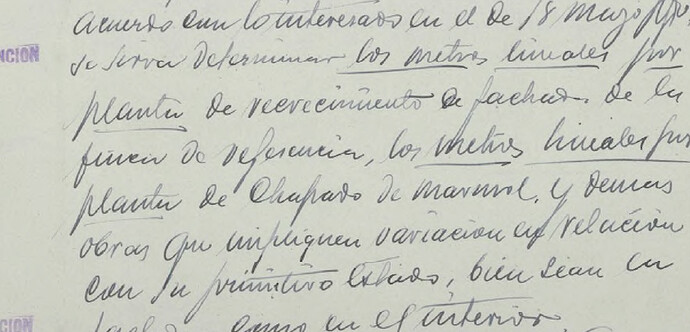 acuerdo con lo interesado en el de 18 Mayo ppdo
NCION
se sirva determinar los metros lineales por
planta de recrecimiento de fachada de la
finca de referencia, los metros lineales por
planta de Chapado de marmol, y demas
obras que impliquen variación en relación
con su primitivo Estado, bien sean en
como en el interior
CION